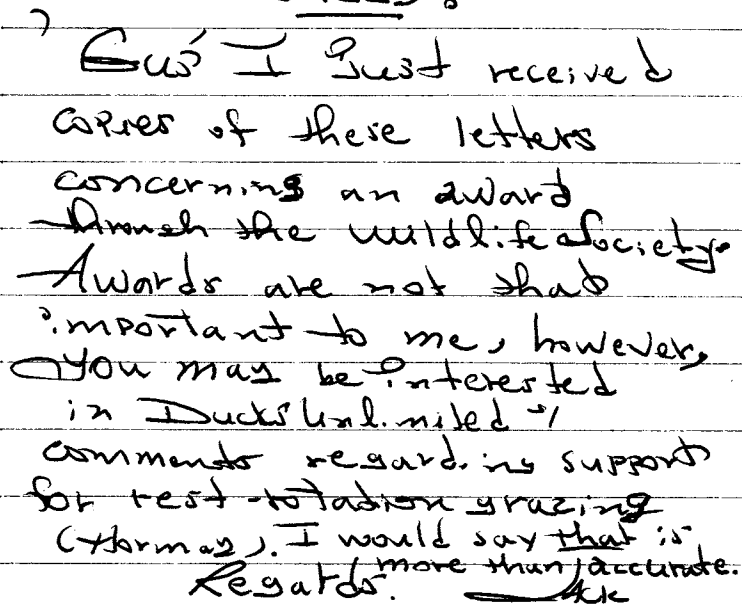 Gus' I Just received
copies of these letters
concerning an award
through the Wildlife Society.
Awards are not that
important to me, however,
you may be interested
in Ducks Unlimited
comments regarding support
for rest-rotation grazing
(Hormay). I would say that is
more than accurate.
Regards.